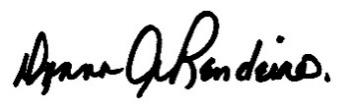 Dynna A. Rendeiro.